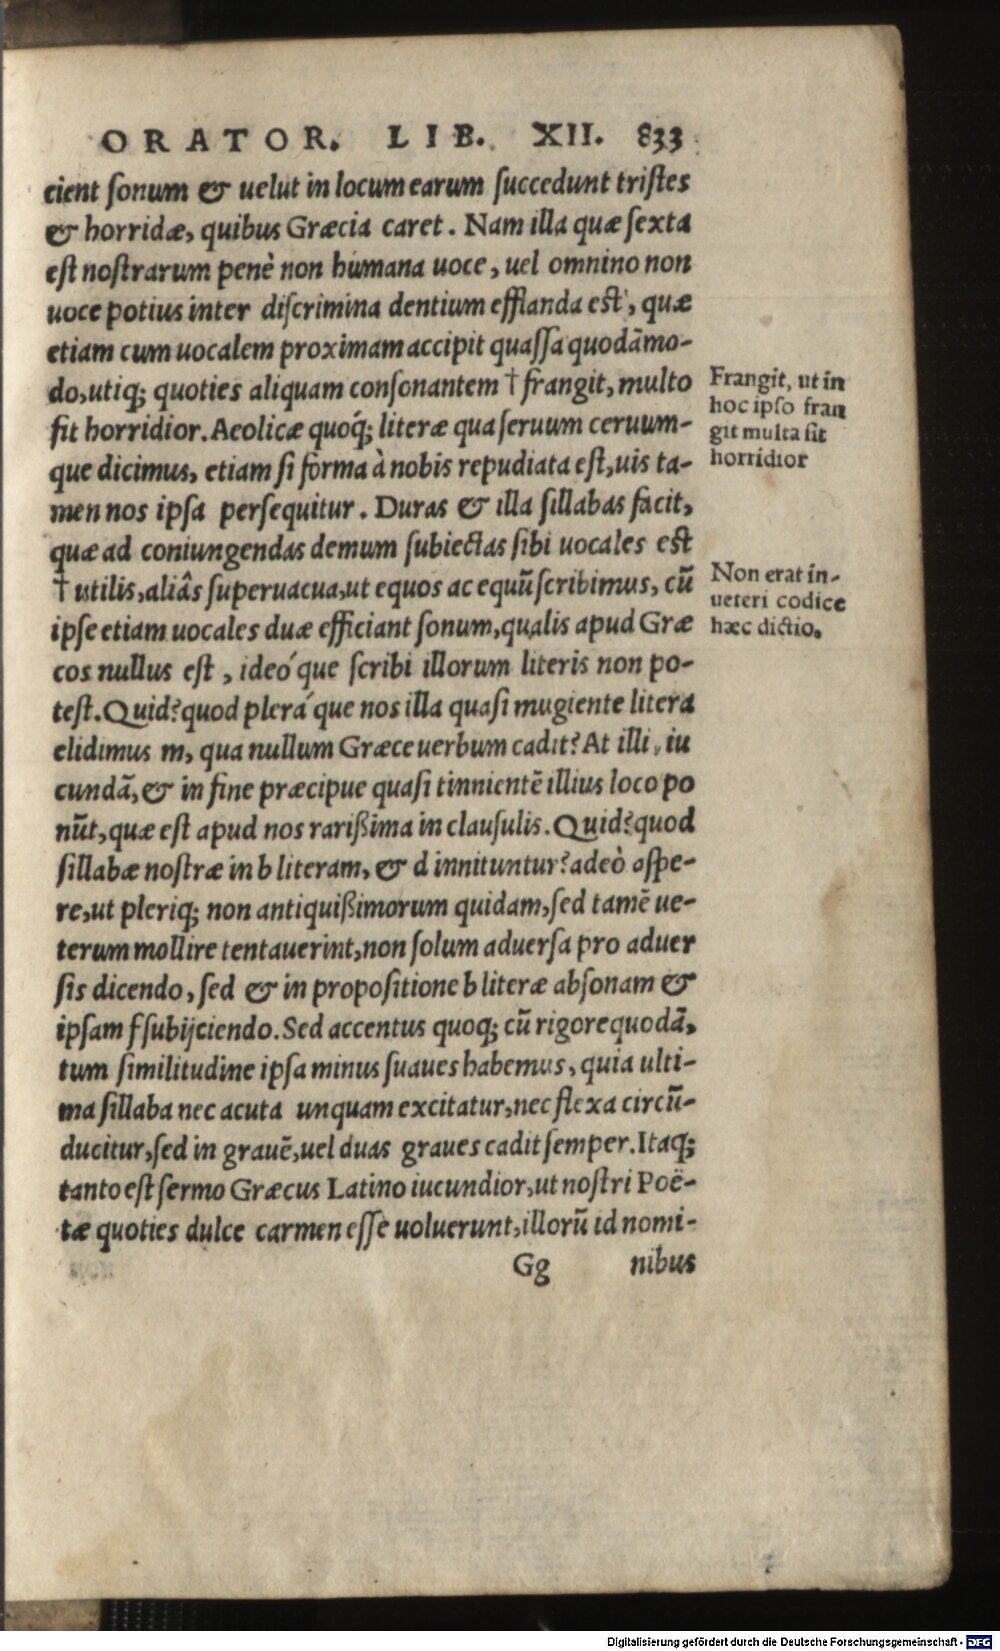 ORATOR. LIB. XII. 833
cient sonum & uelut in locum earum succedunt tristes
& horridæ, quibus Græcia caret. Nam illa quæ sexta
est nostrarum penè non humana uoce, uel omnino non
uoce potius inter discrimina dentium efflanda est, quæ
etiam cum uocalem proximam accipit quassa quodãmo-
do, utiq; quoties aliquam consonantem † frangit, multo
fit horridior. Aeolicæ quoq́; literæ qua seruum ceruum-
que dicimus, etiam si forma à nobis repudiata est, uis ta-
men nos ipsa persequitur. Duras & illa sillabas facit,
quæ ad coniungendas demum subiectas sibi uocales est
† utilis, aliâs superuacua, ut equos ac equũ scribimus, cũ
ipse etiam uocales duæ efficiant sonum, qualis apud Græ
cos nullus est, ideó que scribi illorum literis non po-
test. Quid? quod plerá que nos illa quasi mugiente litera
elidimus m, qua nullum Græce uerbum cadit? At illi, iu
cundã, & in fine præcipue quasi tinnientẽ illius loco po
nũt, quæ est apud nos rarißima in clausulis. Quid? quod
sillabæ nostræ in b literam, & d innituntur? adeò aspe-
re, ut pleriq; non antiquißimorum quidam, sed tamẽ ue-
terum mollire tentauerint, non solum aduersa pro aduer
sis dicendo, sed & in propositione b literæ absonam &
ipsam f subijciendo. Sed accentus quoq; cũ rigore quodã,
tum similitudine ipsa minus suaues habemus, quia ulti-
ma sillaba nec acuta unquam excitatur, nec flexa circũ-
ducitur, sed in grauẽ, uel duas graues cadit semper. Itaq;
tanto est sermo Græcus Latino iucundior, ut nostri Poë-
tæ quoties dulce carmen esse uoluerunt, illorũ id nomi-
Gg nibus
Frangit, ut in
hoc ipso fran
git multa sit
horridior
Non erat in-
ueteri codice
hæc dictio.
Digitalisierung gefördert durch die Deutsche Forschungsgemeinschaft - DFG